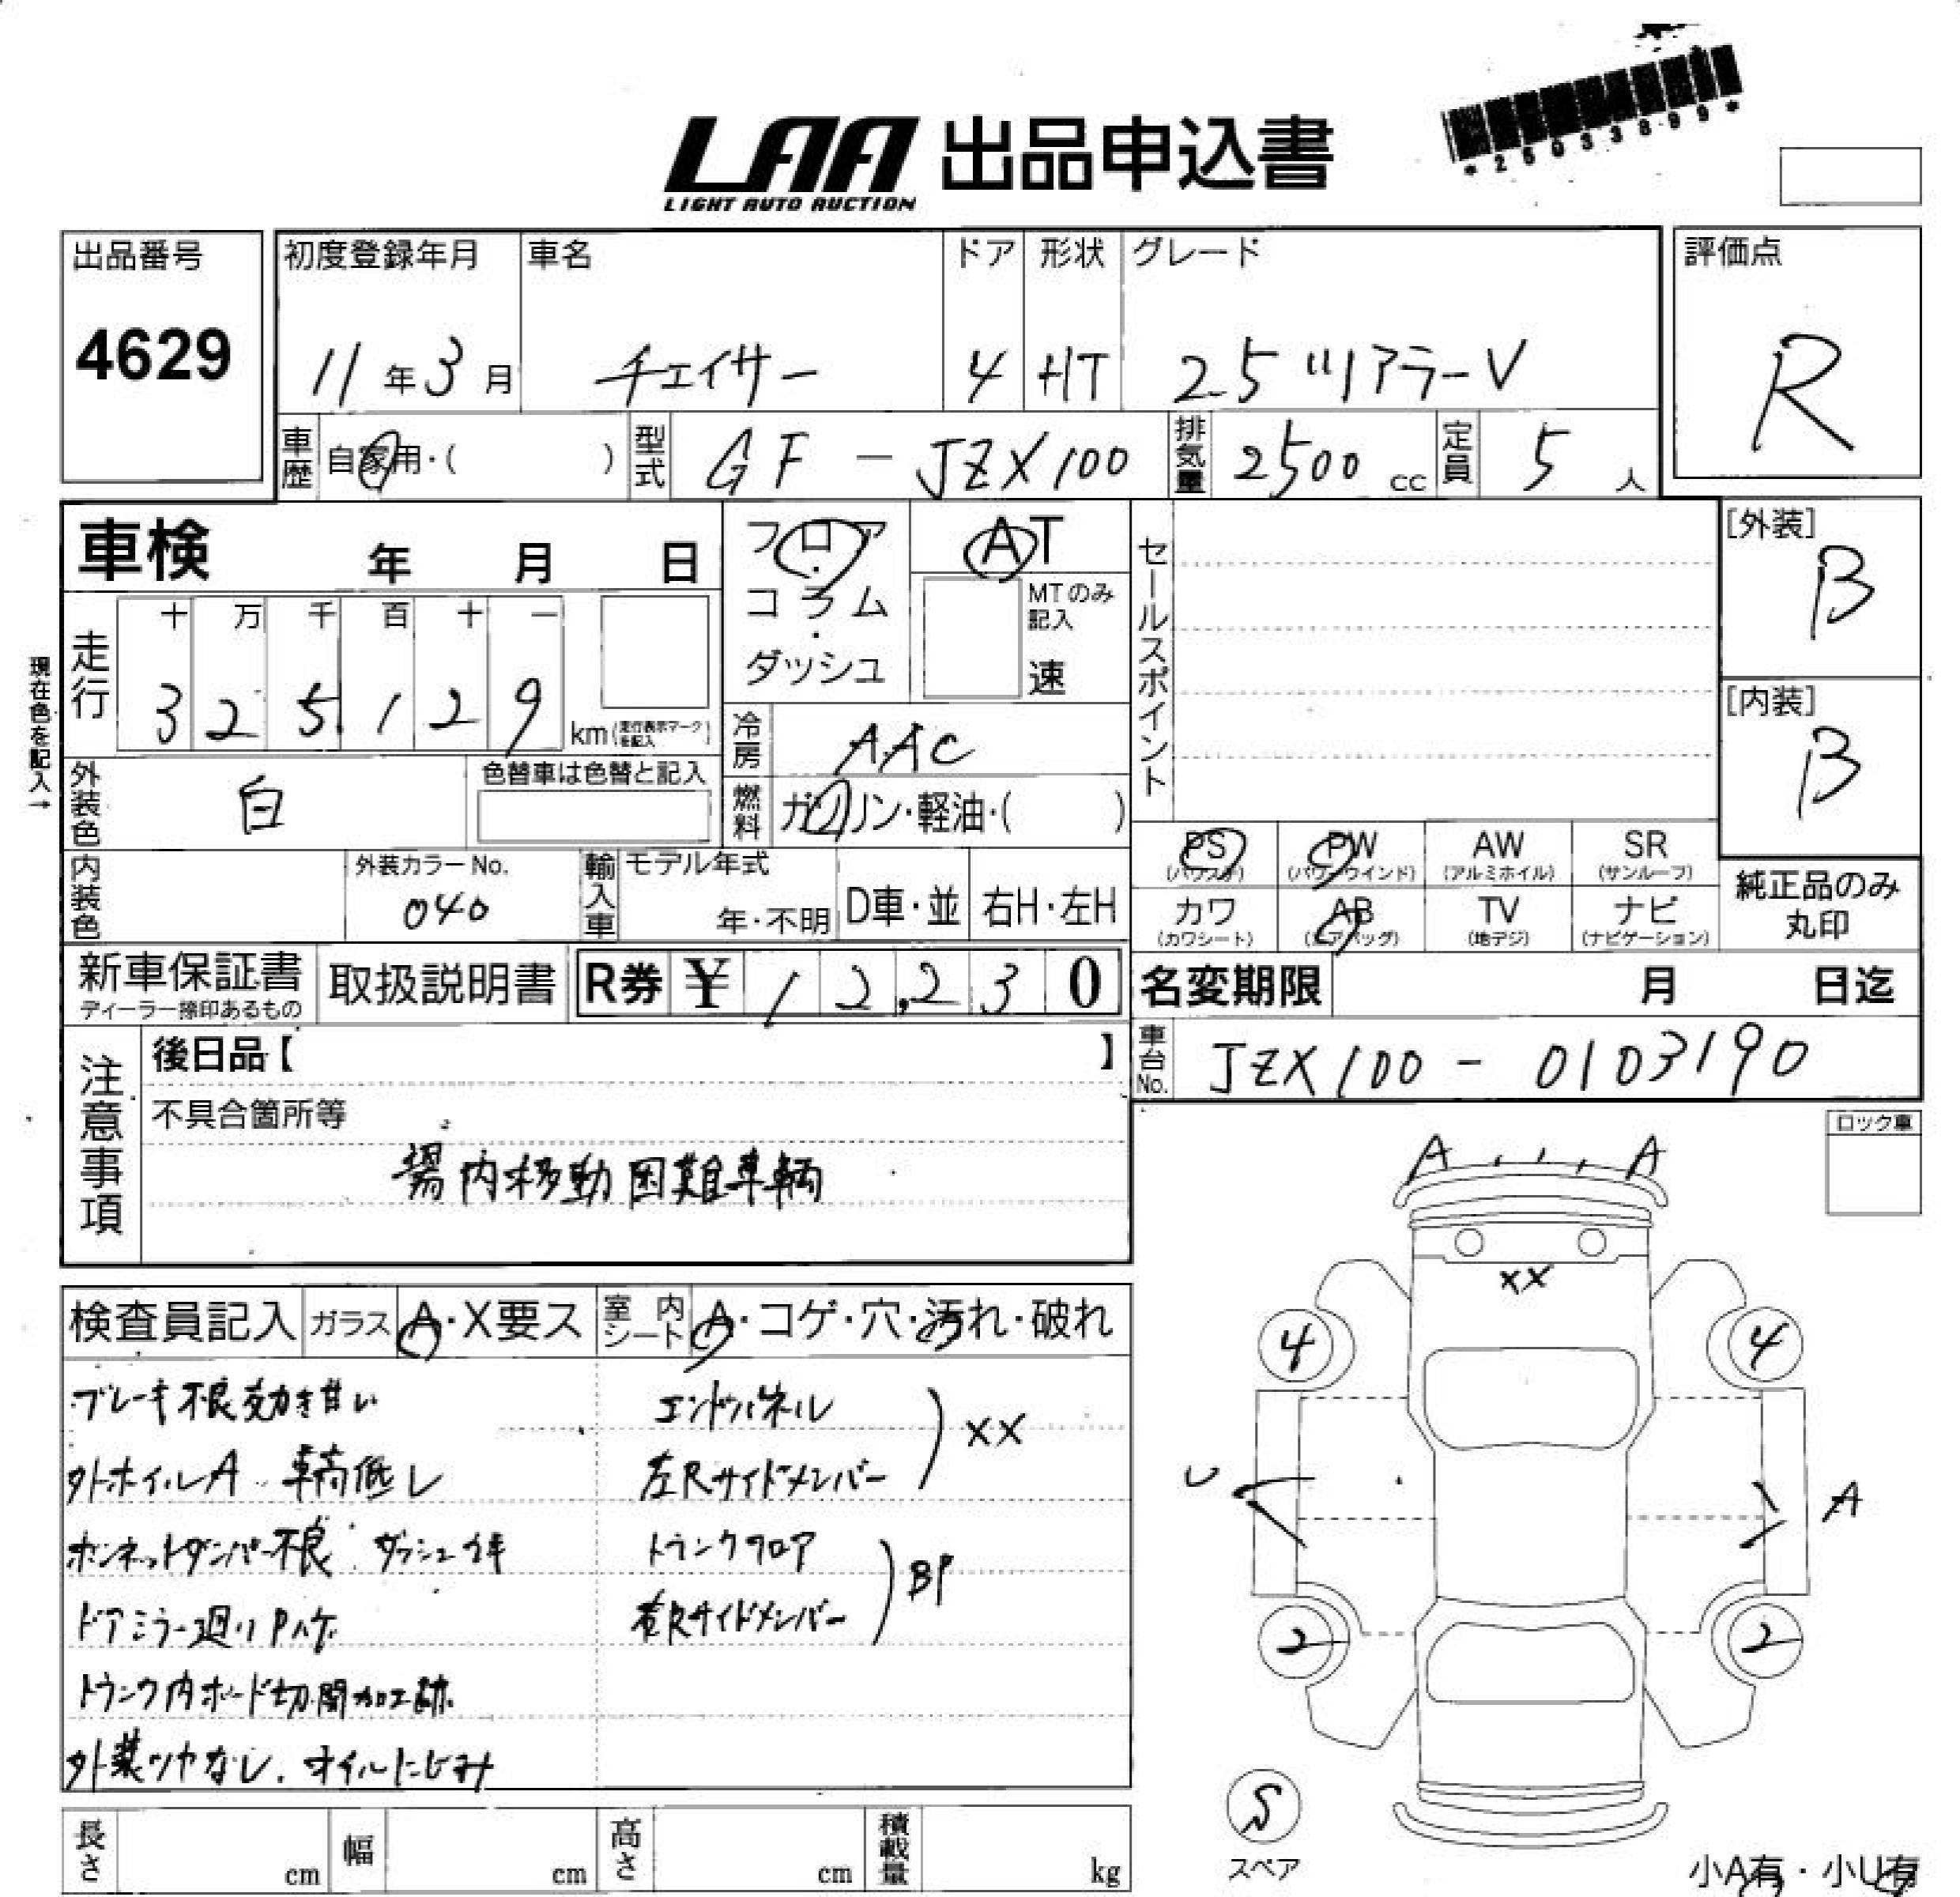 *25033899*
LAA 出品申込書
LIGHT AUTO AUCTION
出品番号
4629
初度登録年月
11年3月
車名
チェイサー
ドア
4
形状
HT
グレード
2.5ツアラーV
評価点
R
車歴 自家用・( )
型式 GF-JZX100
排気量 2500 cc
定員 5 人
車検 年 月 日
フロア・コラム・ダッシュ
AT
MTのみ記入
速
セールスポイント
[外装]
B
[内装]
B
現在色を記入→
走行
十 万 千 百 十 一
3 2 5 1 2 9 km(走行表示マークを記入)
冷房 AAC
燃料 ガソリン・軽油・( )
外装色 白
色替車は色替と記入
内装色
外装カラーNo.
040
輸入車 モデル年式
年・不明 D車・並 右H・左H
PS (パワステ) PW (パワーウインド) AW (アルミホイル) SR (サンルーフ)
カワ (カワシート) AB (エアバッグ) TV (地デジ) ナビ (ナビゲーション)
純正品のみ
丸印
新車保証書
ディーラー捺印あるもの
取扱説明書
R券 ¥ 12,230
名変期限 月 日迄
車台No. JZX100-0103190
注意事項
後日品【 】
不具合箇所等
場内移動困難車輌
ロック車
検査員記入 ガラス A・X要ス 室内シート A・コゲ・穴・汚れ・破れ
ブレーキ不良効き甘い
外ホイルA 車高低し
ボンネットダンパー不良 ダッシュ
ドアミラー廻りPハゲ
トランク内ボード切開加工跡
外装ツヤなし、オイルにじみ
エンドパネル
左Rサイドメンバー
XX
トランクフロア
右Rサイドメンバー
BP
A A
XX
4 4
U A
2 2
S
スペア
小A有・小U有
長さ cm 幅 cm 高さ cm 積載量 kg